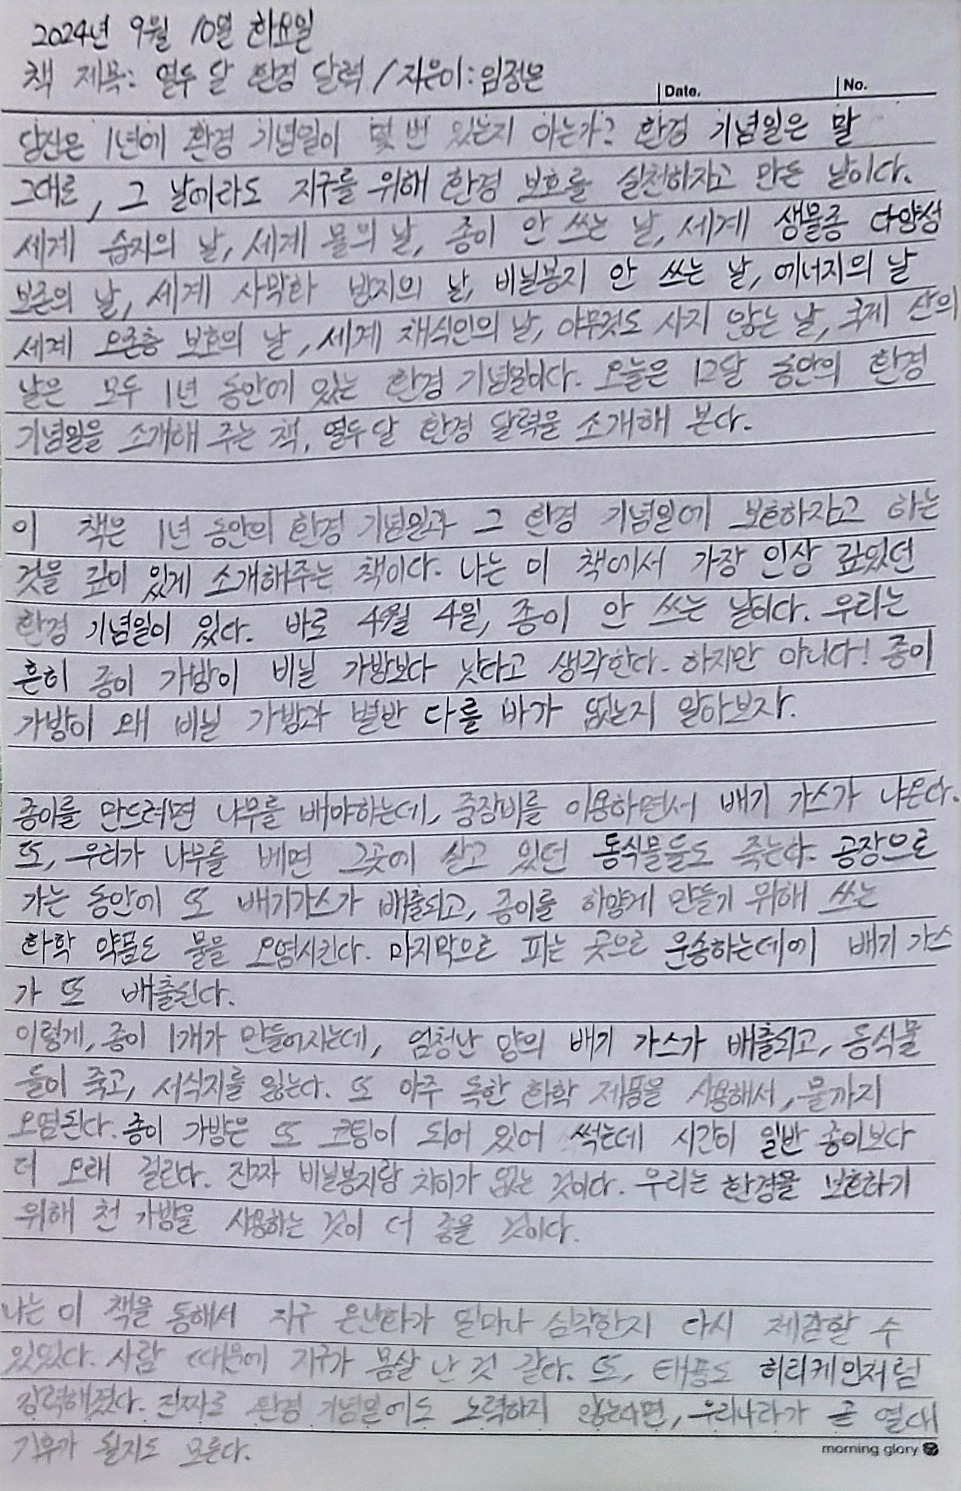 2024년 9월 10일 화요일
책 제목: 열두 달 환경 달력 / 지은이: 임정은
Date. No.
당신은 1년에 환경 기념일이 몇 번 있는지 아는가? 환경 기념일은 말
그대로, 그 날이라도 지구를 위해 환경 보호를 실천하자고 만든 날이다.
세계 습지의 날, 세계 물의 날, 종이 안 쓰는 날, 세계 생물종 다양성
보존의 날, 세계 사막화 방지의 날, 비닐봉지 안 쓰는 날, 에너지의 날
세계 오존층 보호의 날, 세계 채식인의 날, 아무것도 사지 않는 날, 국제 산의
날은 모두 1년 동안에 있는 환경 기념일이다. 오늘은 12달 동안의 환경
기념일을 소개해 주는 책, 열두달 환경 달력을 소개해 본다.
이 책은 1년 동안의 환경 기념일과 그 환경 기념일에 보호하자고 하는
것을 깊이 있게 소개해주는 책이다. 나는 이 책에서 가장 인상 깊었던
환경 기념일이 있다. 바로 4월 4일, 종이 안 쓰는 날이다. 우리는
흔히 종이 가방이 비닐 가방보다 낫다고 생각한다. 하지만 아니다! 종이
가방이 왜 비닐 가방과 별반 다를 바가 없는지 알아보자.
종이를 만드려면 나무를 베야하는데, 중장비를 이용하면서 배기 가스가 나온다.
또, 우리가 나무를 베면 그곳에 살고 있던 동식물들도 죽는다. 공장으로
가는 동안에 또 배기가스가 배출되고, 종이를 하얗게 만들기 위해 쓰는
화학 약품도 물을 오염시킨다. 마지막으로 파는 곳으로 운송하는데에 배기 가스
가 또 배출된다.
이렇게, 종이 1개가 만들어지는데, 엄청난 양의 배기 가스가 배출되고, 동식물
들이 죽고, 서식지를 잃는다. 또 아주 독한 화학 제품을 사용해서, 물까지
오염된다. 종이 가방은 또 코팅이 되어 있어 썩는데 시간이 일반 종이보다
더 오래 걸린다. 진짜 비닐봉지랑 차이가 없는 것이다. 우리는 환경을 보호하기
위해 천 가방을 사용하는 것이 더 좋을 것이다.
나는 이 책을 통해서 지구 온난화가 얼마나 심각한지 다시 체감할 수
있었다. 사람 때문에 지구가 몸살 난 것 같다. 또, 태풍도 허리케인처럼
강력해졌다. 진짜로 환경 기념일에도 노력하지 않는다면, 우리나라가 곧 열대
기후가 될지도 모른다.
morning glory